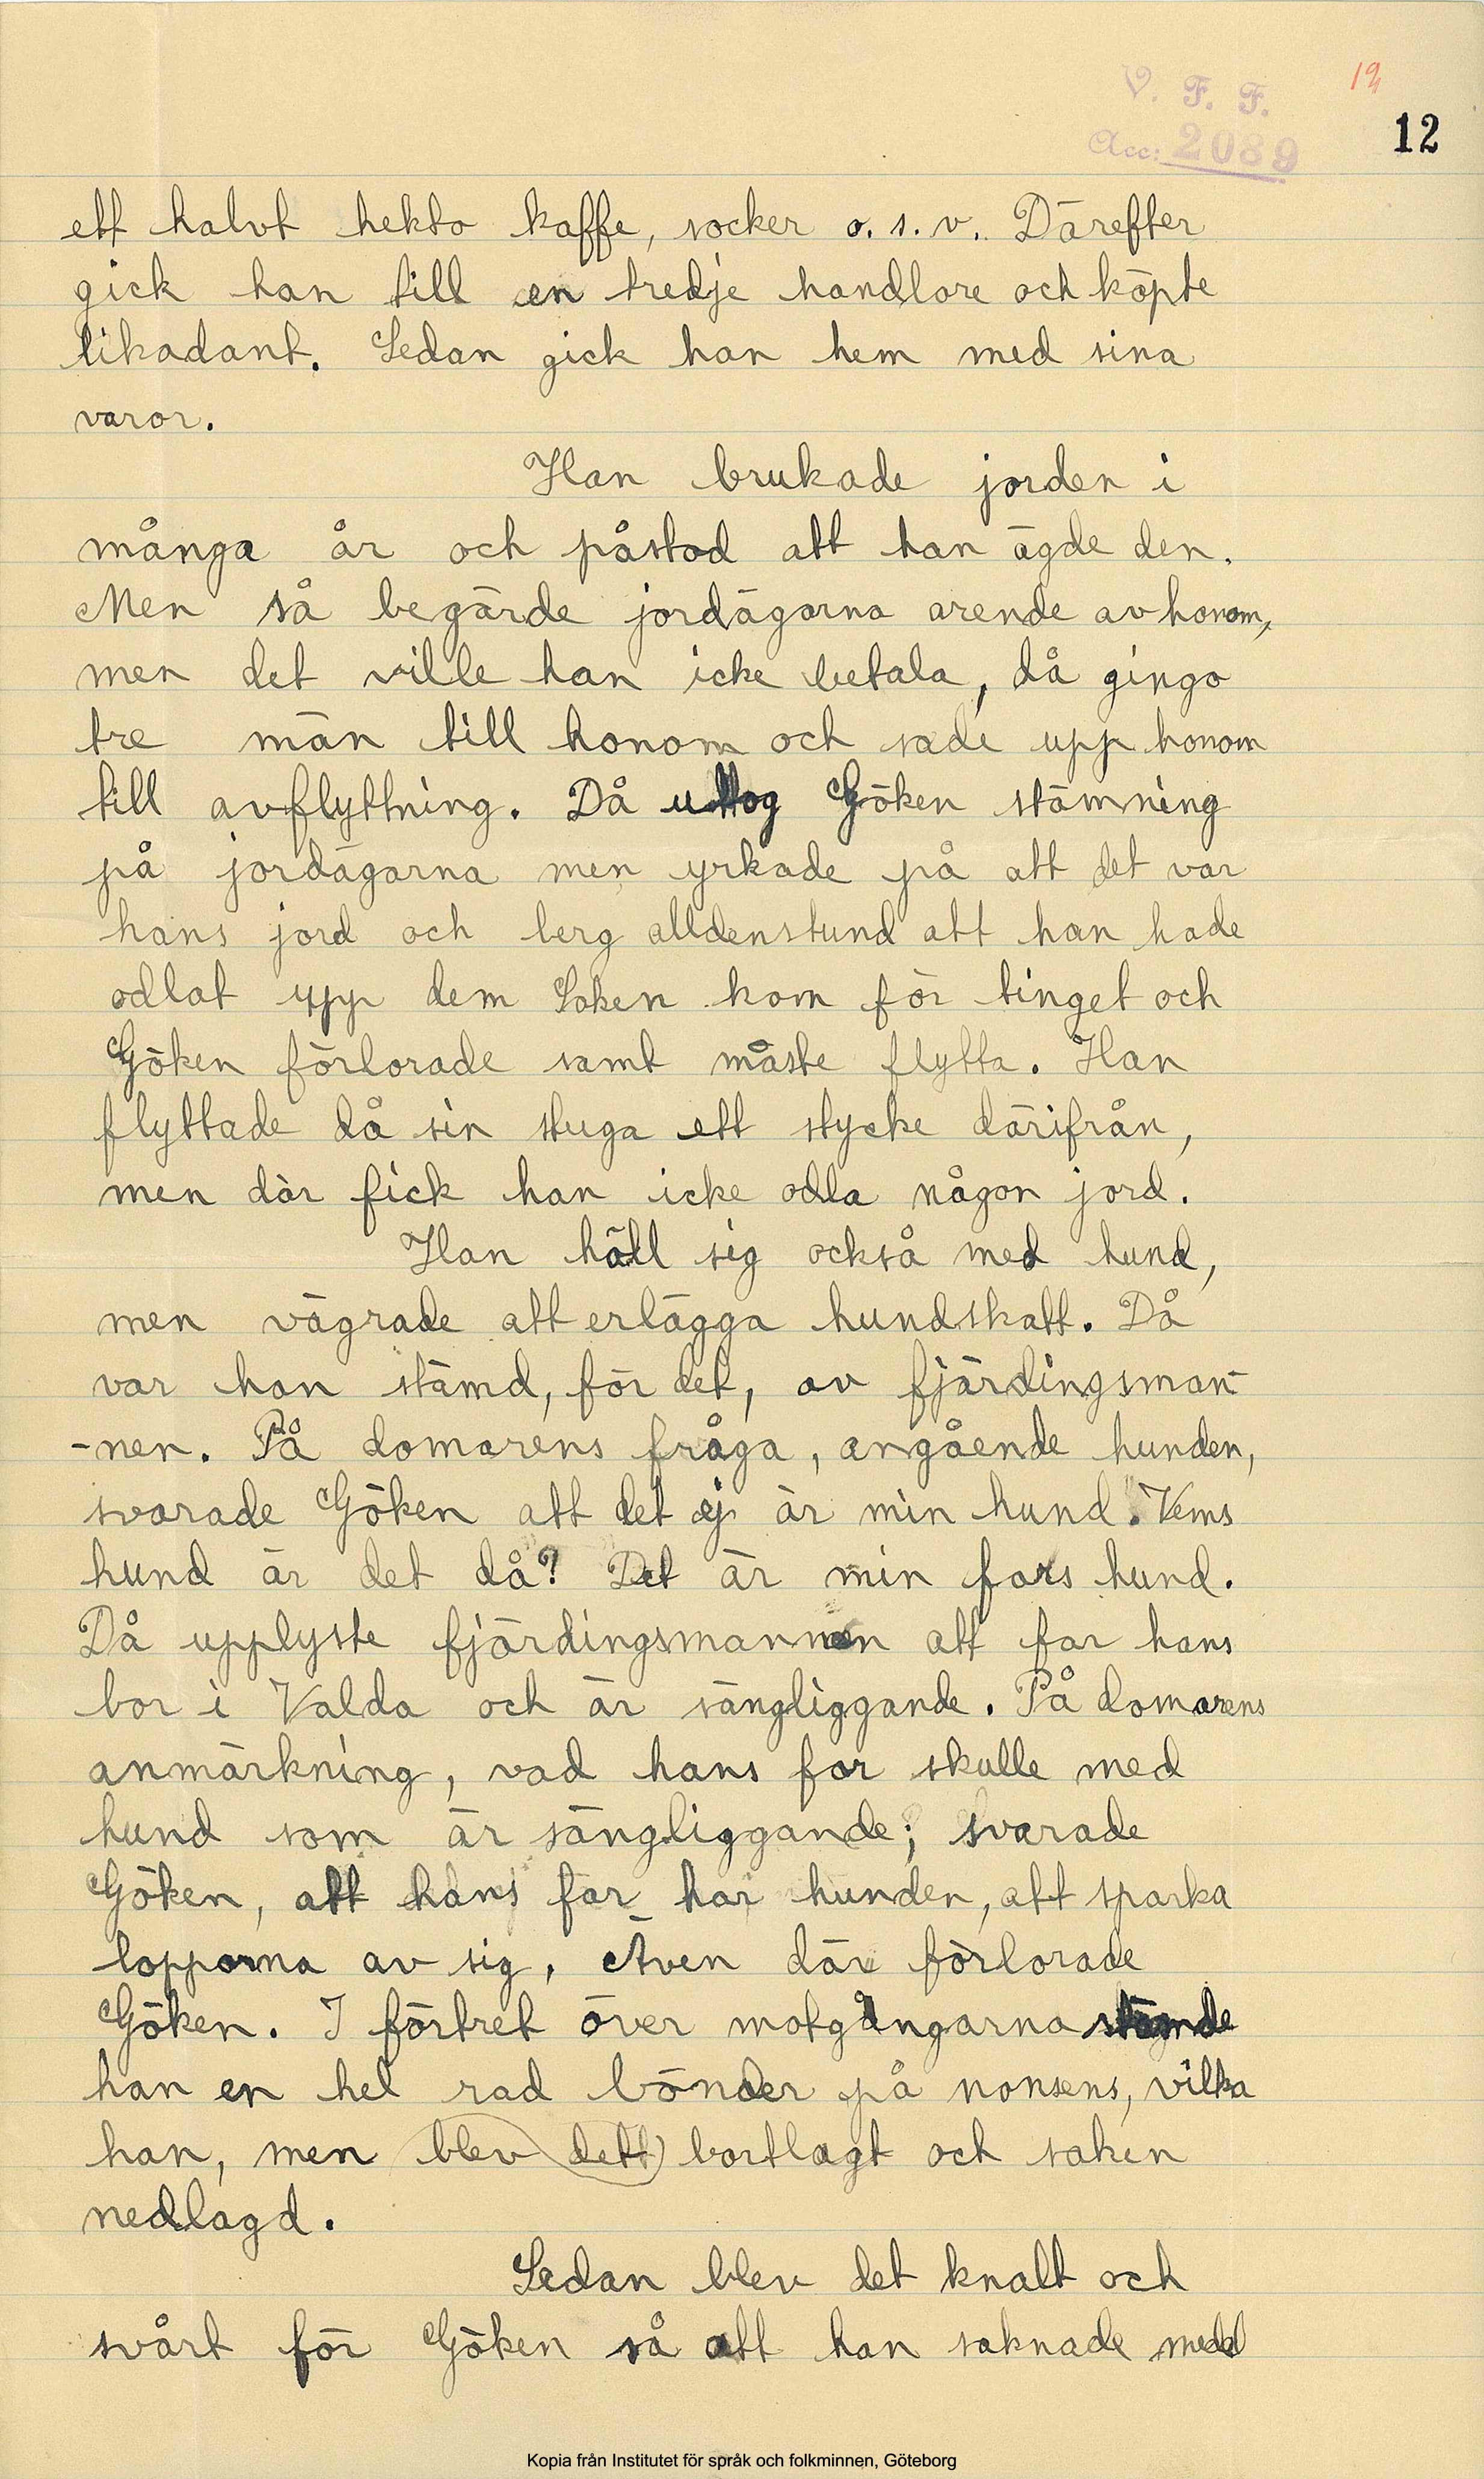 19
V. F. F.
Acc: 2089
12
ett halvt hekto kaffe, socker o. s. v. Därefter
gick han till en tredje handlare och köpte
likadant. Sedan gick han hem med sina
varor.
Han brukade jorden i
många år och påstod att han ägde den.
Men så begärde jordägarna arende av honom,
men det ville han icke betala, då gingo
tre män till honom och sade upp honom
till avflyttning. Då uttog Göken stämning
på jordägarna men yrkade på att det var
hans jord och berg alldenstund att han hade
odlat upp dem Saken kom för tinget och
Göken förlorade samt måste flytta. Han
flyttade då sin stuga ett stycke därifrån,
men där fick han icke odla någon jord.
Han häll sig också med hund,
men vägrade att erlägga hundskatt. Då
var han stämd, för det, av fjärdingsman-
-nen. På domarens fråga, angående hunden,
svarade Göken att det ej är min hund. Vems
hund är det då? Det är min fars hund.
Då upplyste fjärdingsmannen att far hans
bor i Valda och är sängliggande. På domarens
anmärkning, vad hans far skulle med
hund som är sängliggande; svarade
Göken, att hans far har hunden, att sparka
lopporna av sig, Även där förlorade
Göken. I förtret över motgångarna stämde
han en hel rad bönder på nonsens, vilka
han, men blev dett bortlagt och saken
nedlagd.
Sedan blev det knalt och
svårt för Göken så att han saknade medel
Kopia från Institutet för språk och folkminnen, Göteborg